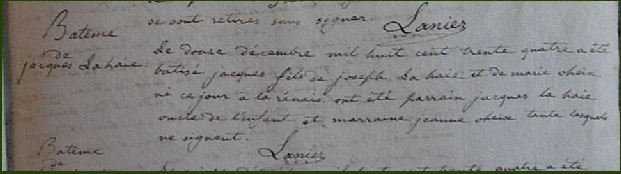 se sont retirés sans signer.
Lanier
Batême
de
jacques Lahaie
Le douze décembre mil huit cent trente quatre a été
batisé jacques fils de joseph La haie et de marie
né ce jour à la ont été parrain jacques la haie
oncle de l'enfant et marraine jeanne tante lesquels
ne signent.
Lanier
Batême
de
trente quatre a été